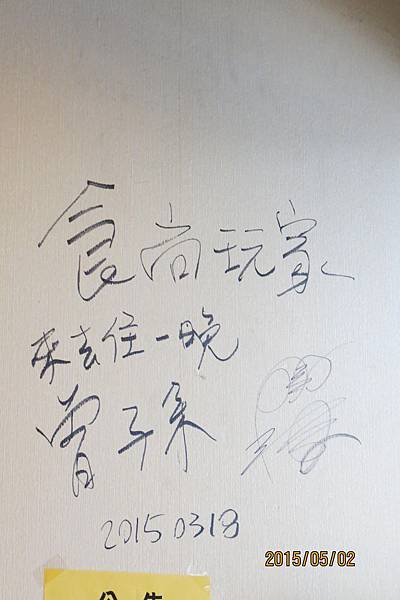 食尚玩家
來去住一晚
曾子余
20150318
2015/05/02
公告